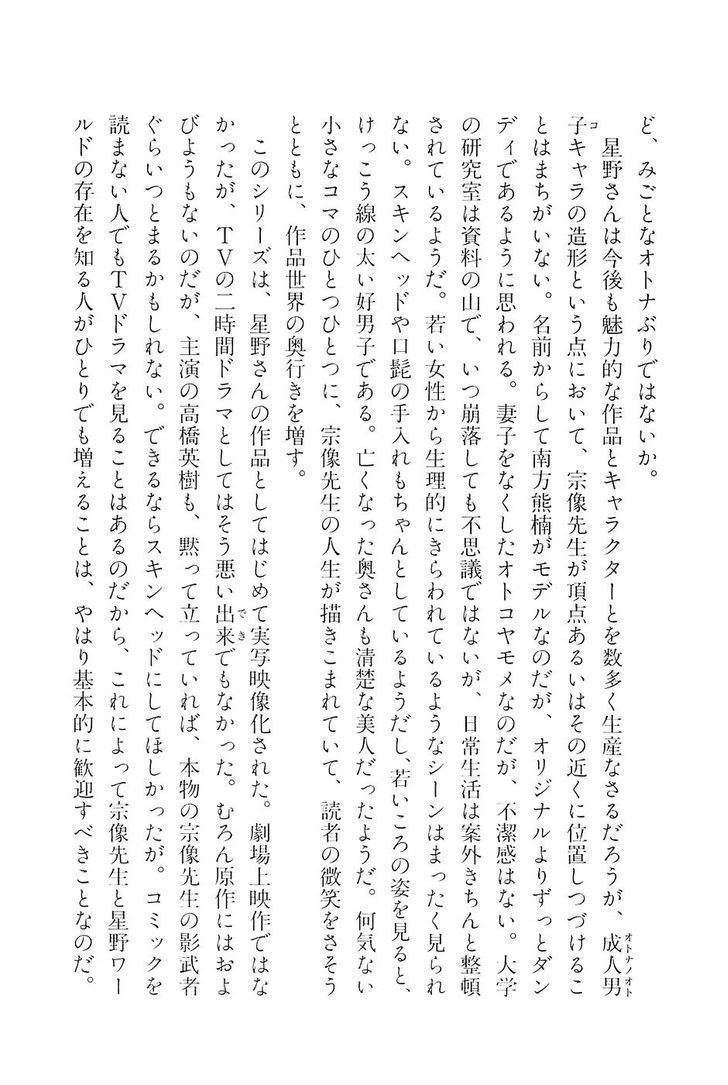 ど、みごとなオトナぶりではないか。
　星野さんは今後も魅力的な作品とキャラクターとを数多く生産なさるだろうが、成人男
オトナノオト
子キャラの造形という点において、宗像先生が頂点あるいはその近くに位置しつづけるこ
コ
とはまちがいない。名前からして南方熊楠がモデルなのだが、オリジナルよりずっとダン
ディであるように思われる。妻子をなくしたオトコヤモメなのだが、不潔感はない。大学
の研究室は資料の山で、いつ崩落しても不思議ではないが、日常生活は案外きちんと整頓
されているようだ。若い女性から生理的にきらわれているようなシーンはまったく見られ
ない。スキンヘッドや口髭の手入れもちゃんとしているようだし、若いころの姿を見ると、
けっこう線の太い好男子である。亡くなった奥さんも清楚な美人だったようだ。何気ない
小さなコマのひとつひとつに、宗像先生の人生が描きこまれていて、読者の微笑をさそう
とともに、作品世界の奥行きを増す。
　このシリーズは、星野さんの作品としてはじめて実写映像化された。劇場上映作ではな
かったが、TVの二時間ドラマとしてはそう悪い出来でもなかった。むろん原作にはおよ
でき
びようもないのだが、主演の高橋英樹も、黙って立っていれば、本物の宗像先生の影武者
ぐらいつとまるかもしれない。できるならスキンヘッドにしてほしかったが。コミックを
読まない人でもTVドラマを見ることはあるのだから、これによって宗像先生と星野ワー
ルドの存在を知る人がひとりでも増えることは、やはり基本的に歓迎すべきことなのだ。